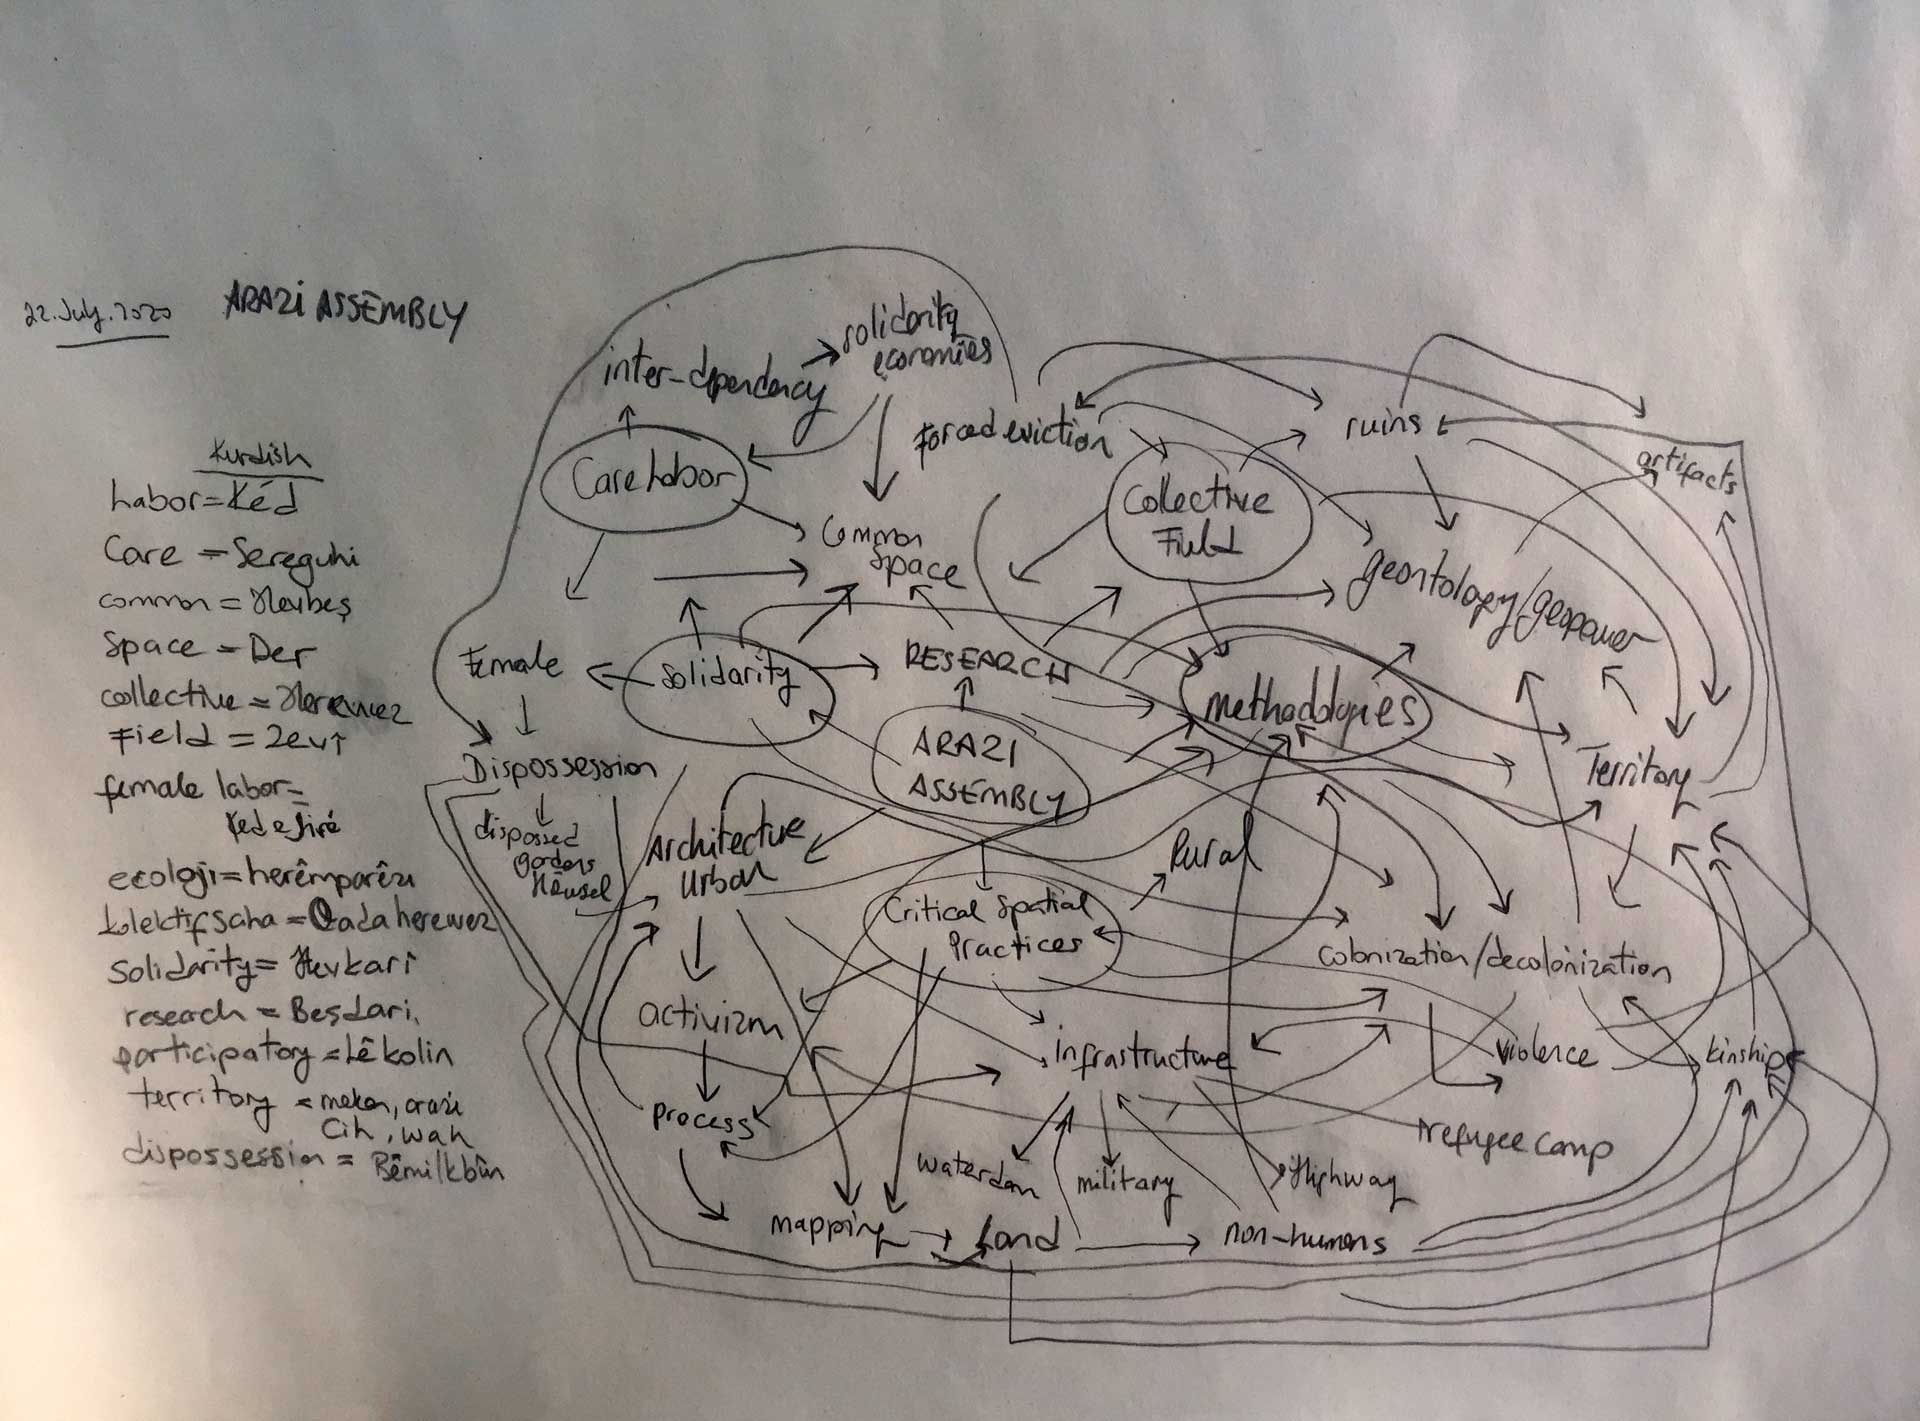 22.July.2020
ARAZi ASSEMBLY
Kurdish
Labor=Kéd
Care = Sereguhi
common = Hevbeş
Space = Der
collective = Herewez
Field = Zevî
female labor=
ecoloji=herêmparêzi
saha = Qada herewez
Solidarity= Hevkarî
research = Beşdari
participatory = Lê kolin
territory = mekan, arazi
Cih, wak
dispossession = Bêmilkbûn
inter-dependency
solidarity
economies
Forced eviction
ruins
artifacts
Care Labor
Collective
Field
Common
Space
geontology/geopower
Female
Solidarity
RESEARCH
methodologies
ARAZI
ASSEMBLY
Territory
Dispossession
dispossed
gardens
Architecture
Urban
Rural
Critical Spatial
Practices
Colonization/decolonization
activizm
infrastructure
Violence
kinship
process
refugee camp
waterdam
military
Highway
mapping
Land
non-humans